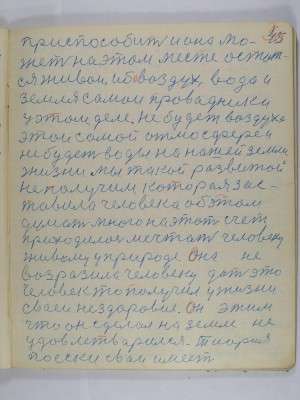 45
приспособит и она мо-
жет на этом месте остат-
ся живои, ибо воздух, вода и
земля самои провадники
у этом деле. не будет воздуха
этои самой атмосферей
не будет воды на нашей земли
жизни мы такой развитой
не получим, которая зас-
тавила человека об этом
думат много на этот счет
приходилос мечтат человеку
живому у природе. Она не
возразила человеку дат это
Человек то получил у жизни
сваеи нездоровие. Он этим
что он сделал на земли не
удовлетварился. Тиория
поески сваи имеет